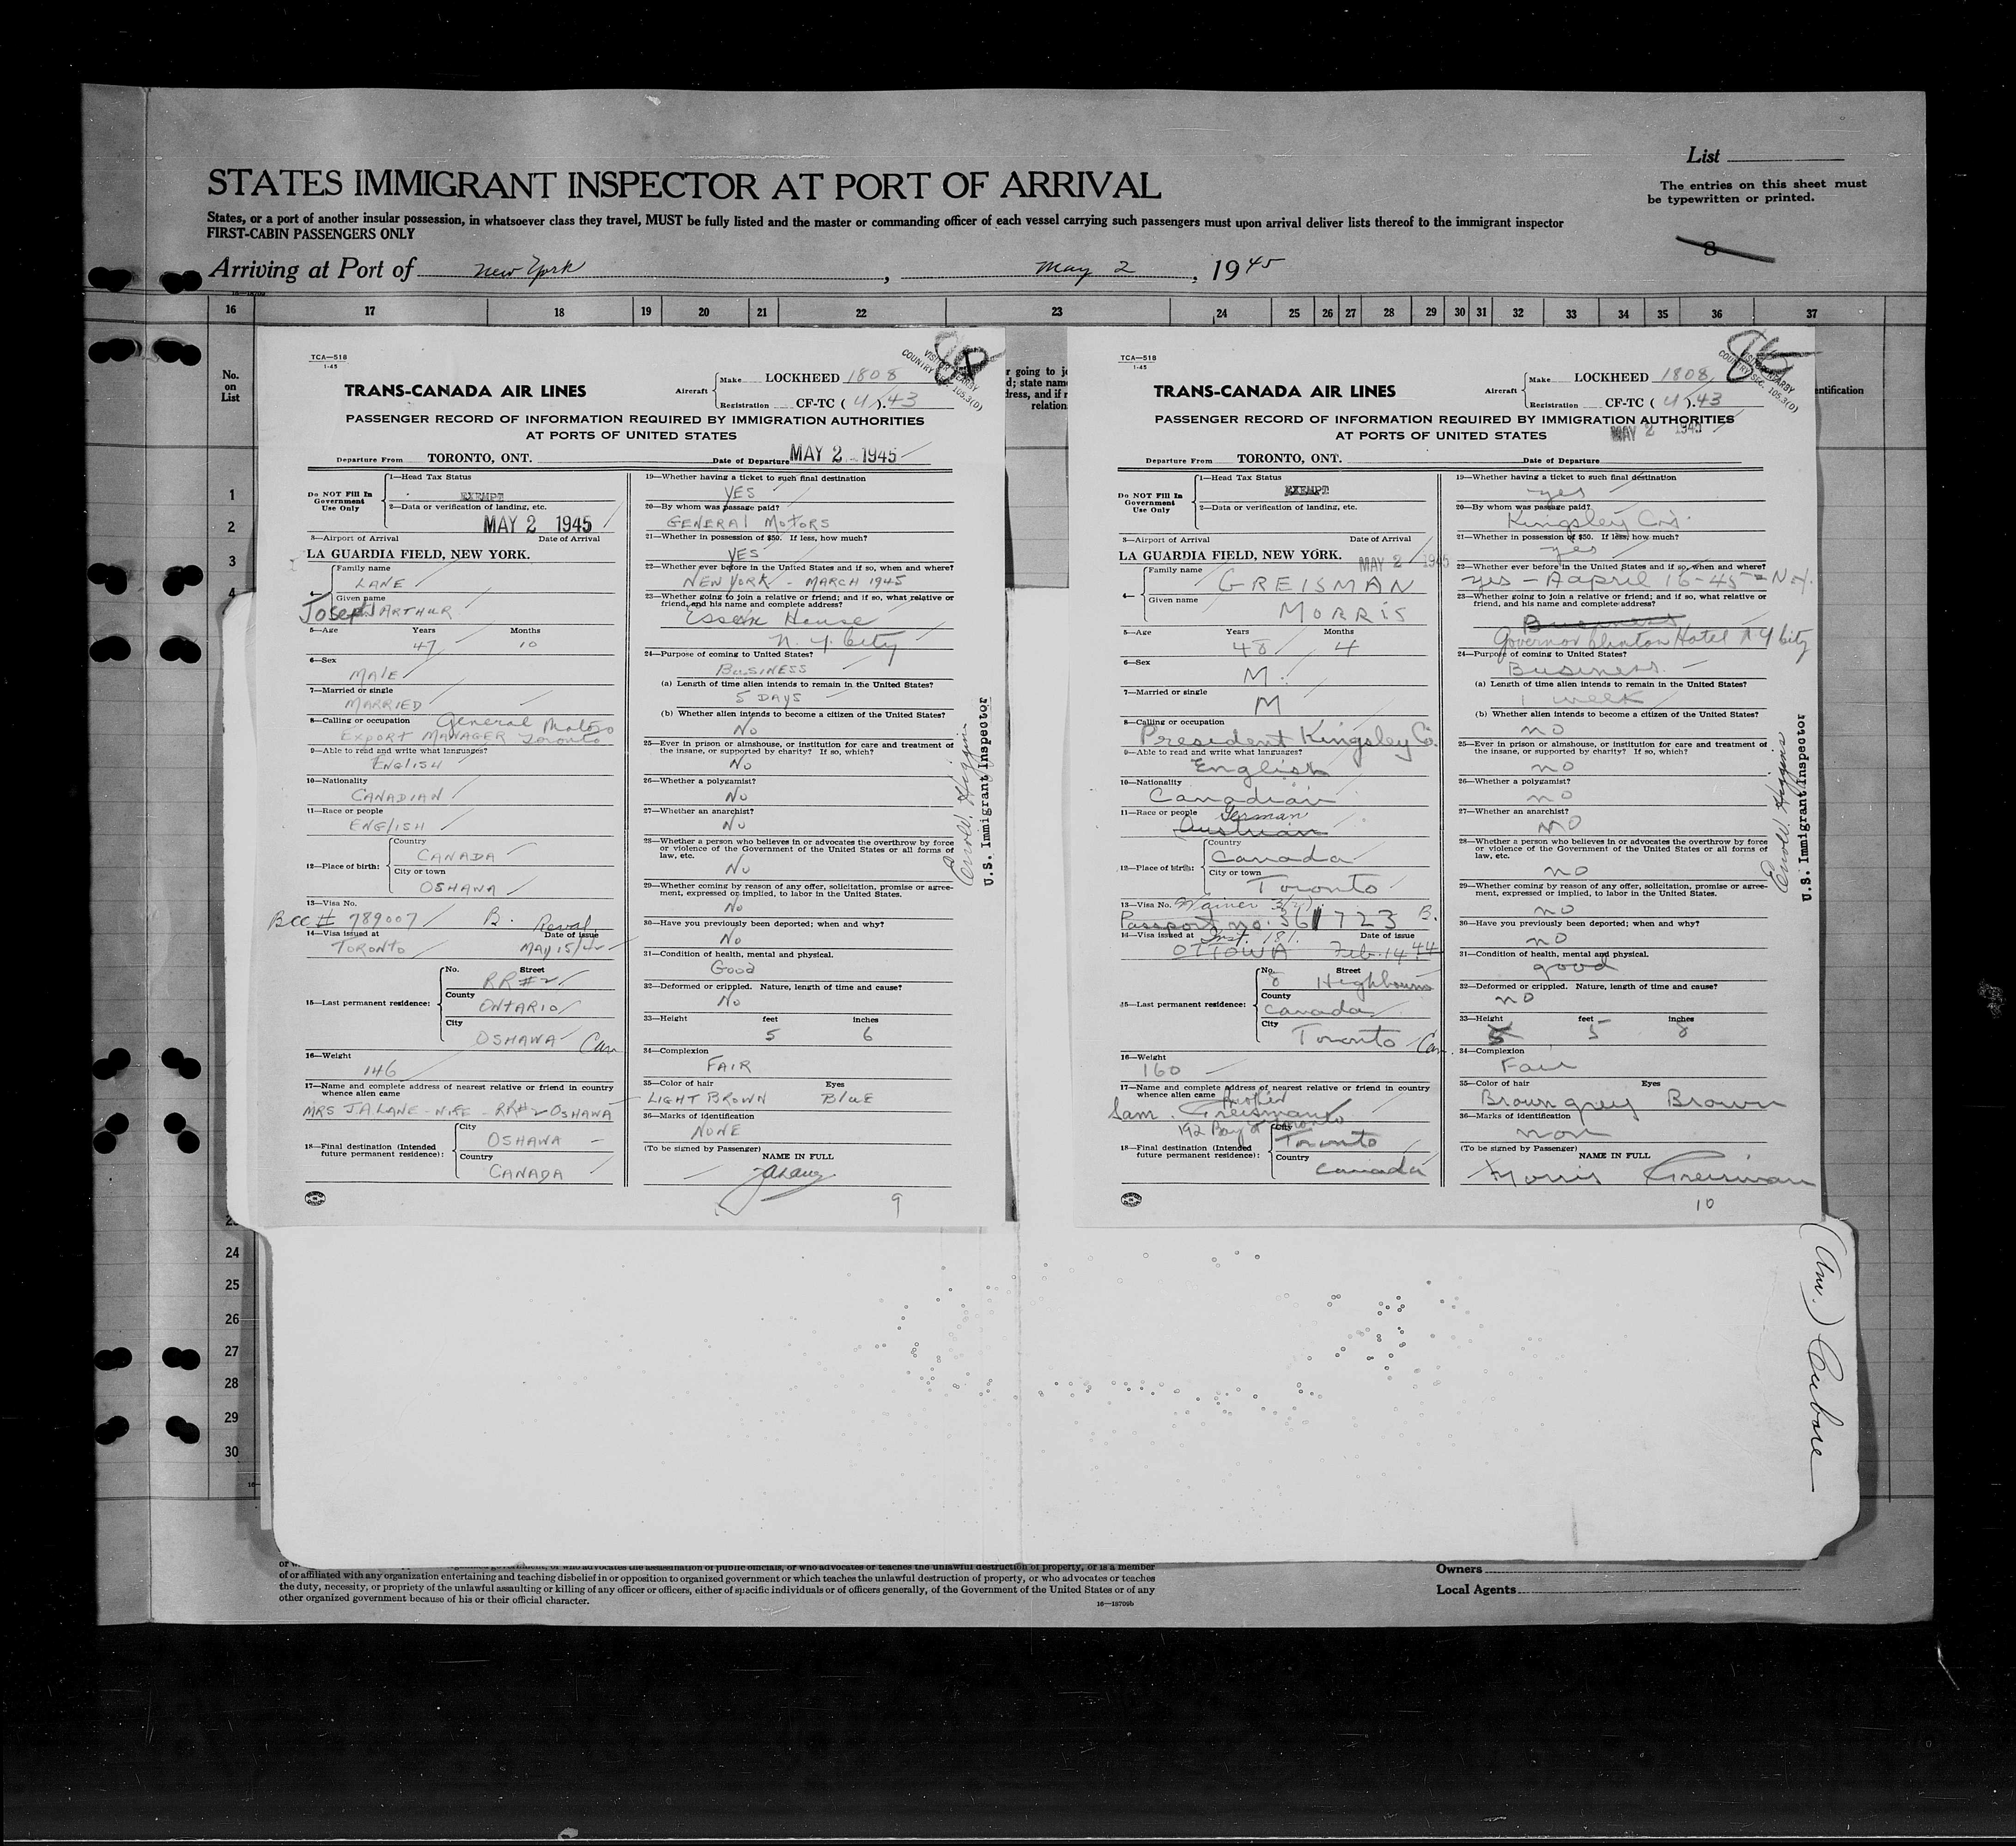 List
STATES IMMIGRANT INSPECTOR AT PORT OF ARRIVAL
The entries on this sheet must
be typewritten or printed.
States, or a port of another insular possession, in whatsoever class they travel, MUST be fully listed and the master or commanding officer of each vessel carrying such passengers must upon arrival deliver lists thereof to the immigrant inspector
FIRST-CABIN PASSENGERS ONLY
8
Arriving at Port of New York, May 2, 1945
16 17 18 19 20 21 22 23 24 25 26 27 28 29 30 31 32 33 34 35 36 37
No.
on
List
1
2
3
4
TCA—518
1-45
TRANS-CANADA AIR LINES
Aircraft
Make LOCKHEED 1808
Registration CF-TC ( U ). 43
PASSENGER RECORD OF INFORMATION REQUIRED BY IMMIGRATION AUTHORITIES
AT PORTS OF UNITED STATES
Departure From TORONTO, ONT. Date of Departure MAY 2 1945
Do NOT Fill In
Government
Use Only
1—Head Tax Status
EXEMPT
2—Data or verification of landing, etc.
MAY 2 1945
3—Airport of Arrival Date of Arrival
LA GUARDIA FIELD, NEW YORK.
4—
Family name
LANE
Given name
Joseph ARTHUR
5—Age Years Months
47 10
6—Sex
MALE
7—Married or single
MARRIED
8—Calling or occupation General Motors
EXPORT MANAGER Toronto
9—Able to read and write what languages?
ENGLISH
10—Nationality
CANADIAN
11—Race or people
ENGLISH
12—Place of birth:
Country
CANADA
City or town
OSHAWA
13—Visa No.
BCC # 789007 B.
14—Visa issued at Date of issue
TORONTO MAY 15/
15—Last permanent residence:
No. Street
RR#2
County
ONTARIO
City
OSHAWA Can
16—Weight
146
17—Name and complete address of nearest relative or friend in country
whence alien came
MRS J A LANE - WIFE - RR#2 OSHAWA
18—Final destination (Intended
future permanent residence):
City
OSHAWA
Country
CANADA
19—Whether having a ticket to such final destination
YES
20—By whom was passage paid?
GENERAL MOTORS
21—Whether in possession of $50. If less, how much?
YES
22—Whether ever before in the United States and if so, when and where?
NEW YORK - MARCH 1945
23—Whether going to join a relative or friend; and if so, what relative or
friend, and his name and complete address?
Essex House
N. Y. City
24—Purpose of coming to United States?
BUSINESS
(a) Length of time alien intends to remain in the United States?
5 DAYS
(b) Whether alien intends to become a citizen of the United States?
No
25—Ever in prison or almshouse, or institution for care and treatment of
the insane, or supported by charity? If so, which?
No
26—Whether a polygamist?
No
27—Whether an anarchist?
No
28—Whether a person who believes in or advocates the overthrow by force
or violence of the Government of the United States or all forms of
law, etc.
No
29—Whether coming by reason of any offer, solicitation, promise or agree-
ment, expressed or implied, to labor in the United States.
No
30—Have you previously been deported; when and why?
No
31—Condition of health, mental and physical.
Good
32—Deformed or crippled. Nature, length of time and cause?
No
33—Height feet inches
5 6
34—Complexion
FAIR
35—Color of hair Eyes
LIGHT BROWN BLUE
36—Marks of identification
NONE
(To be signed by Passenger)
NAME IN FULL
JALane
9
U.S. Immigrant Inspector
TCA—518
1-45
TRANS-CANADA AIR LINES
Aircraft
Make LOCKHEED 1808
Registration CF-TC ( U ). 43
PASSENGER RECORD OF INFORMATION REQUIRED BY IMMIGRATION AUTHORITIES
AT PORTS OF UNITED STATES
MAY 2 1945
Departure From TORONTO, ONT. Date of Departure
Do NOT Fill In
Government
Use Only
1—Head Tax Status
EXEMPT
2—Data or verification of landing, etc.
3—Airport of Arrival Date of Arrival
LA GUARDIA FIELD, NEW YORK. MAY 2 1945
4—
Family name
GREISMAN
Given name
MORRIS
5—Age Years Months
48 4
6—Sex
M.
7—Married or single
M
8—Calling or occupation
President Kingsley Co.
9—Able to read and write what languages?
English
10—Nationality
Canadian
11—Race or people German
Austrian
12—Place of birth:
Country
Canada
City or town
Toronto
13—Visa No. Waiver
Passport no. 361723 B.
14—Visa issued at Date of issue
OTTOWA Feb. 14 44
15—Last permanent residence:
No. Street
8 Highbourne
County
Canada
City
Toronto Can.
16—Weight
160
17—Name and complete address of nearest relative or friend in country
whence alien came Brother
Sam. Greisman
192 Bay St Toronto
18—Final destination (Intended
future permanent residence):
City
Toronto
Country
Canada
19—Whether having a ticket to such final destination
yes
20—By whom was passage paid?
Kingsley Co.
21—Whether in possession of $50. If less, how much?
yes
22—Whether ever before in the United States and if so, when and where?
yes - Aapril 16-45 - N.Y.
23—Whether going to join a relative or friend; and if so, what relative or
friend, and his name and complete address?
Business
Governor Clinton Hotel N Y City
24—Purpose of coming to United States?
Business.
(a) Length of time alien intends to remain in the United States?
1 week
(b) Whether alien intends to become a citizen of the United States?
no
25—Ever in prison or almshouse, or institution for care and treatment of
the insane, or supported by charity? If so, which?
no
26—Whether a polygamist?
no
27—Whether an anarchist?
no
28—Whether a person who believes in or advocates the overthrow by force
or violence of the Government of the United States or all forms of
law, etc.
no
29—Whether coming by reason of any offer, solicitation, promise or agree-
ment, expressed or implied, to labor in the United States.
no
30—Have you previously been deported; when and why?
no
31—Condition of health, mental and physical.
good
32—Deformed or crippled. Nature, length of time and cause?
no
33—Height feet inches
5 5 8
34—Complexion
Fair
35—Color of hair Eyes
Brown grey Brown
36—Marks of identification
non
(To be signed by Passenger)
NAME IN FULL
Morris Greisman
10
U.S. Immigrant Inspector
24
25
26
27
28
29
30
of or affiliated with any organization entertaining and teaching disbelief in or opposition to organized government or which teaches the unlawful destruction of property, or who advocates or teaches
the duty, necessity, or propriety of the unlawful assaulting or killing of any officer or officers, either of specific individuals or of officers generally, of the Government of the United States or of any
other organized government because of his or their official character.
16—18709b
Owners
Local Agents